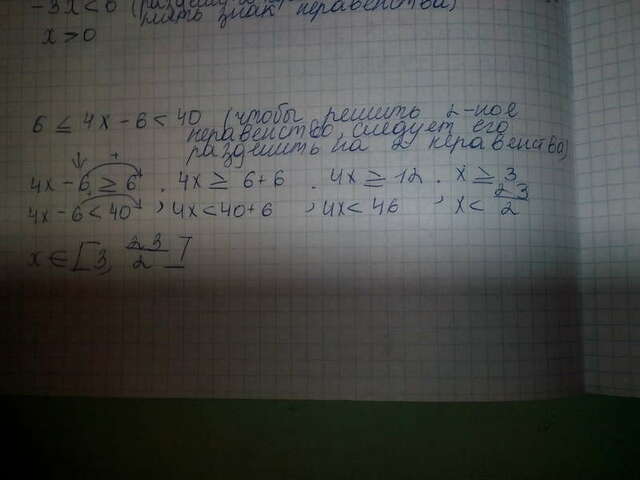 -3x<0 (
знак неравенства)
x>0
6 ≤ 4x-6<40 (чтобы решить 2-ное
неравенство, следует его
разделить на 2 неравенства)
4x-6≥6, 4x≥6+6, 4x≥12, x≥3
4x-6<40, 4x<40+6, 4x<46, x<23/2
x∈[3, 23/2]